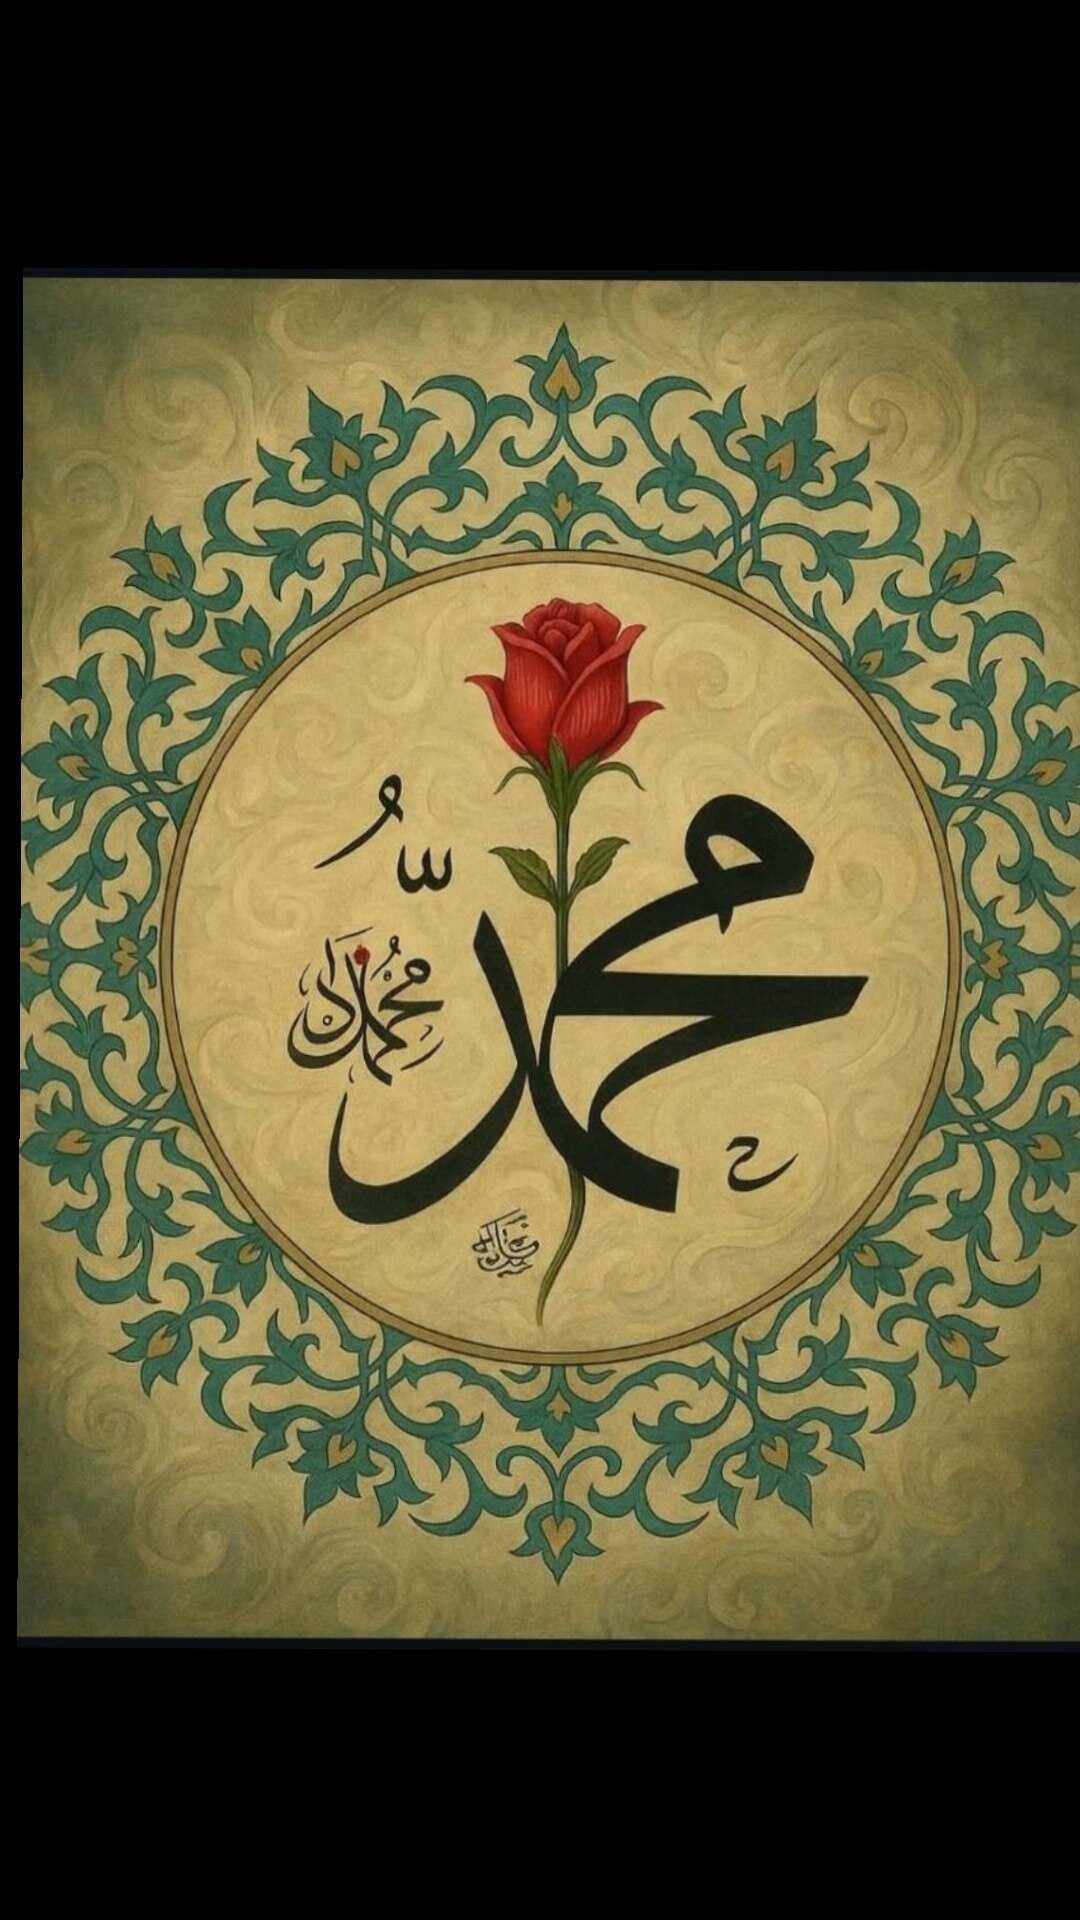 محمد
محمد